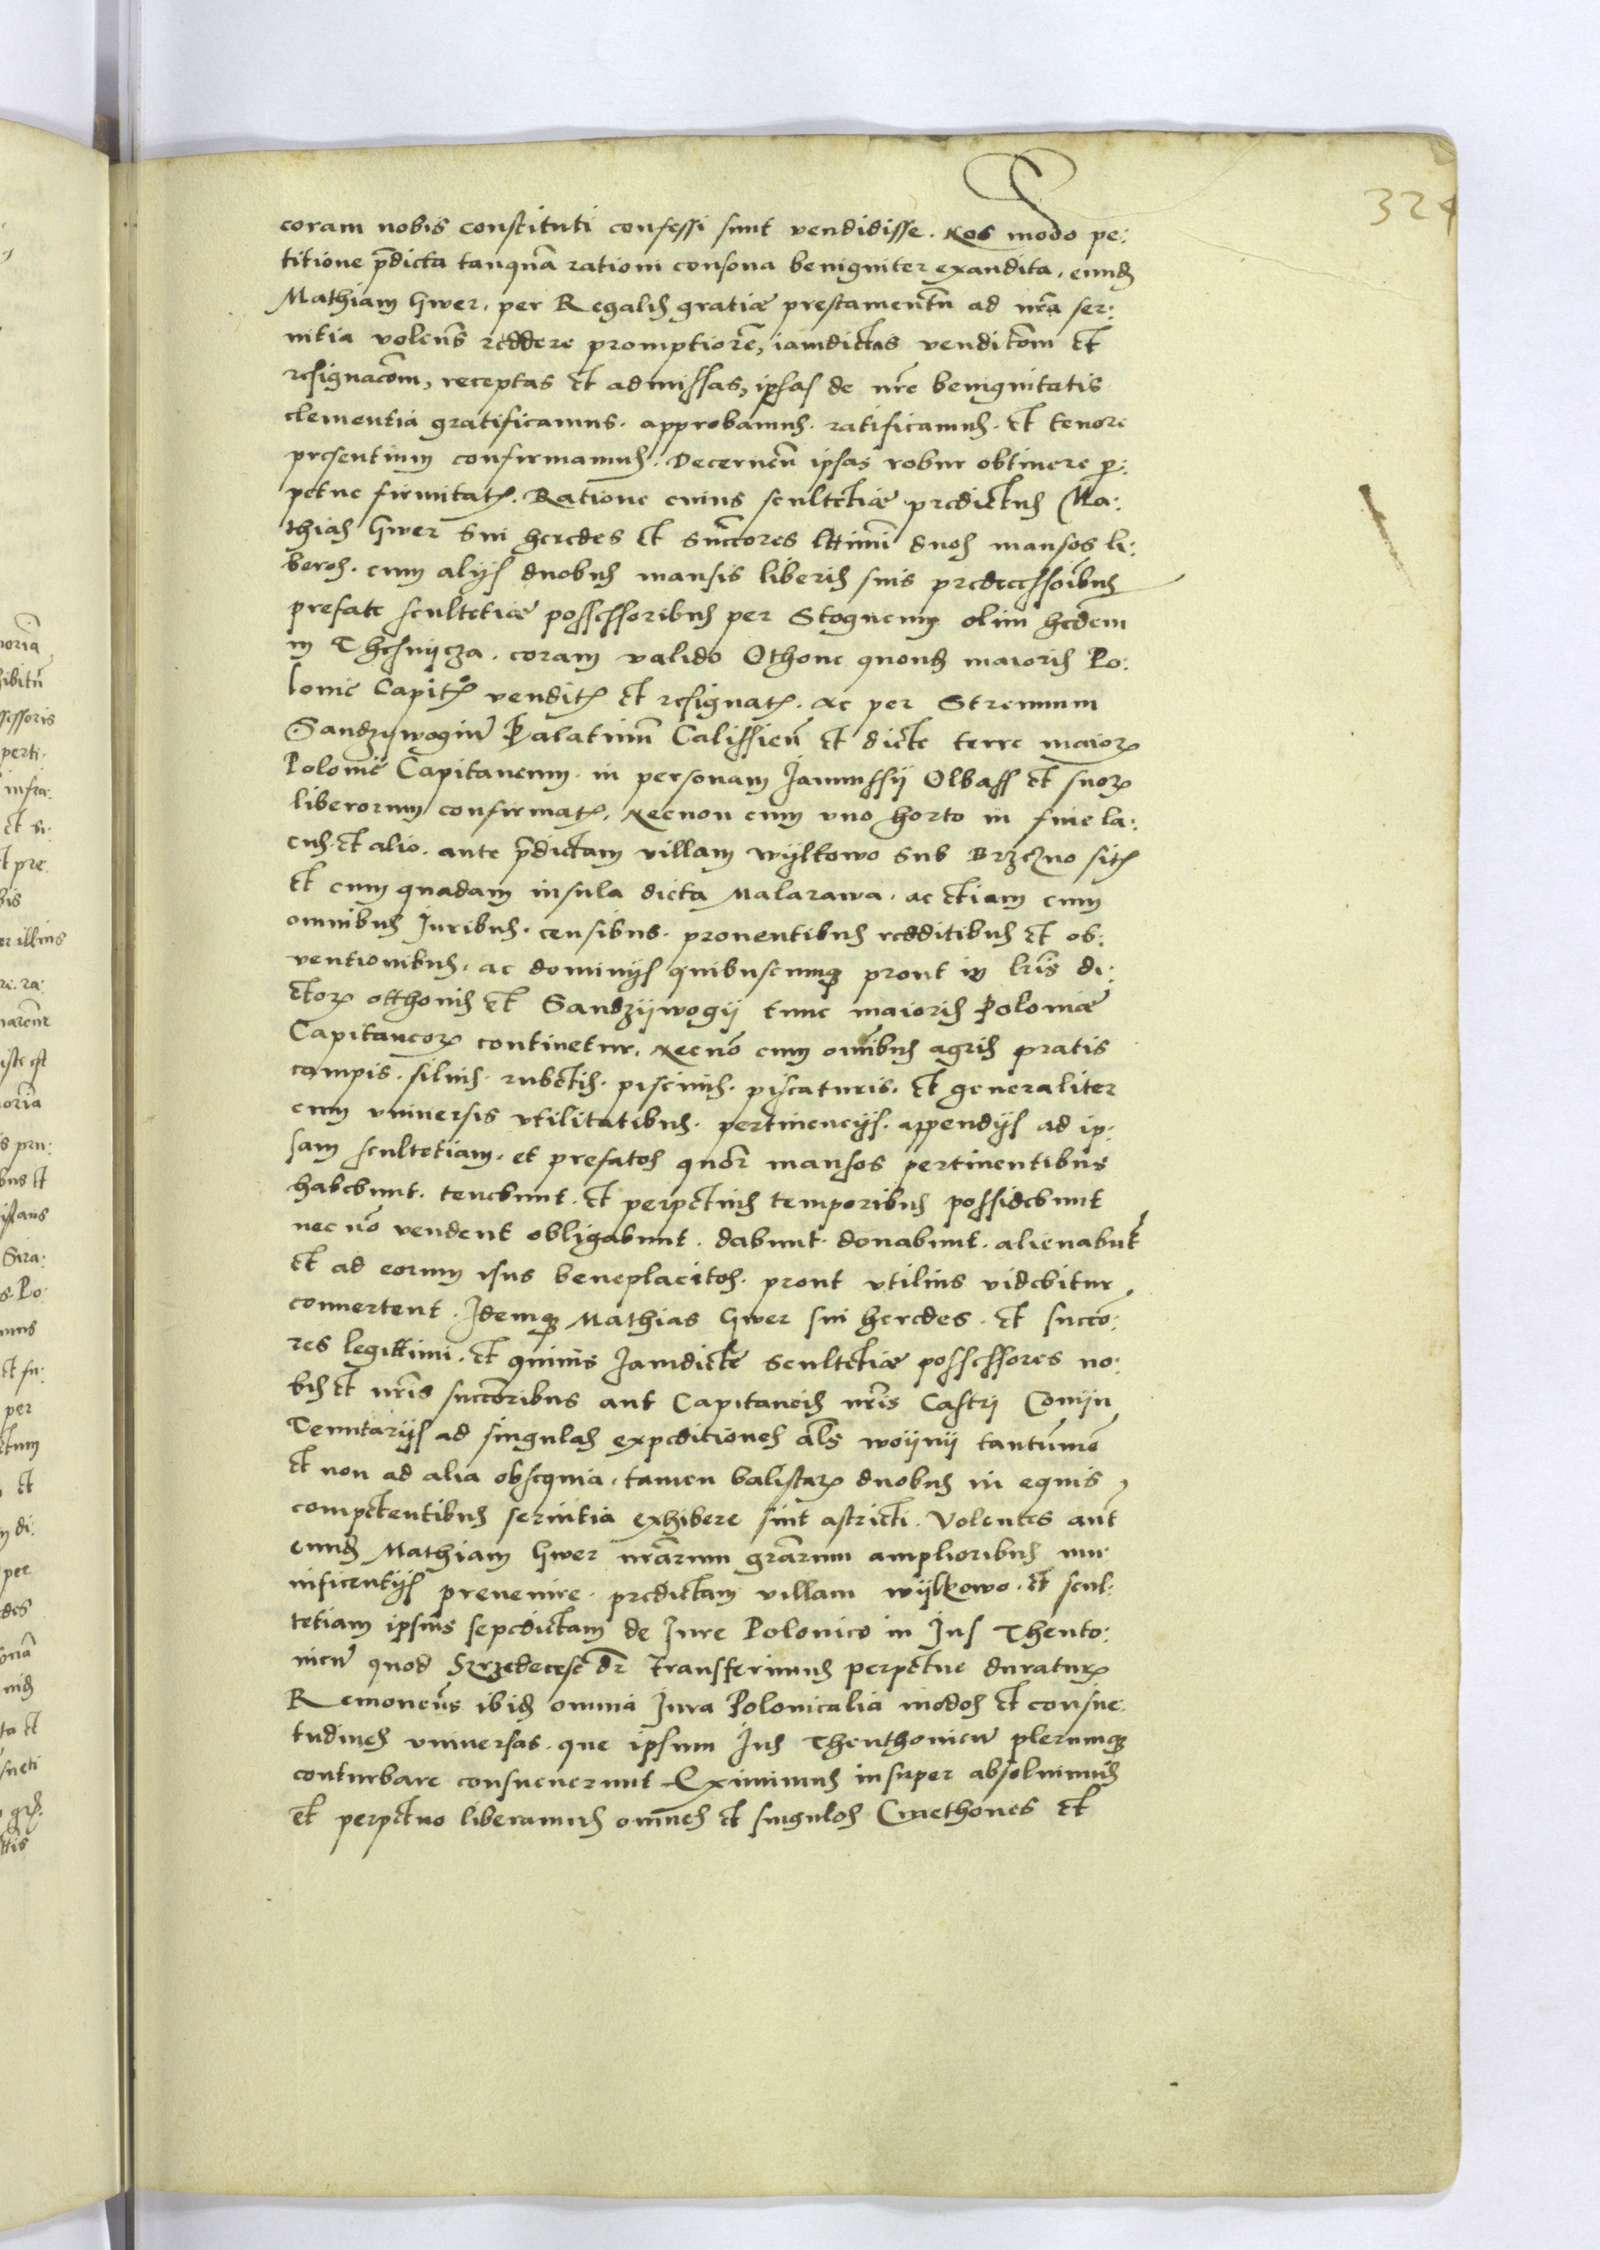 324
coram nobis constituti confessi sunt vendidisse. Nos modo pe:
titione p̄dicta tanquā rationi consona benigniter exaudita, eundē
Mathiam Gwer, per Regalis gratiæ prestamentū ad nrā ser:
uitia volens reddere promptiorē, iamdictas venditōm et
resignacōm, receptas et admissas, ipsas de nrē benignitatis
clementia gratificamus. approbamus. ratificamus. et tenore
presentium confirmamus. Decernen̄ ipsas robur obtinere p:
petue firmitatꝭ. Ratione cuius scultetiæ predictus Ma:
thias Gwer Sui heredes et succ̄ores lttimi duos mansos li:
beros. cum alijs duobus mansis liberis suis predecessoribus
prefate scultetiæ possessoribus per Stognewm olim hedem
in Thesnijcza. coram valido Othone quondā maioris Po:
lonie Capitꝭ venditꝭ et resignatꝭ. Ac per Strenuum
Sandzywogiū Palatinum Calissien̄ et dicte terre maioꝝ
Polonie Capitaneum. in personam Janussij Olbass et suoꝝ
liberorum confirmatꝭ. Necnon cum vno horto in fine la:
cus. et alio. ante p̄dictam villam wylkowo Sub Brzezno sitꝭ
et cum quadam insula dicta Malarawa. ac etiam cum
omnibus Juribus. censibus. prouentibus redditibus et ob:
uentionibus. ac dominijs quibuscumqꝫ prout in lr̄is di:
ctoꝝ otthonis et Sandzijwogij tunc maioris Poloniæ
Capitaneoꝝ continetur. Necnō cum om̄ibus agris pratis
campis. siluis. rubetis. piscinis. piscaturis. et generaliter
cum vniuersis vtilitatibus. pertinencijs. appendijs ad ip:
sam scultetiam. et prefatos quōr mansos pertinentibus
habebunt. tenebunt. et perpetuis temporibus possidebunt
nec nō vendent obligabunt. dabunt. donabunt. alienabūt
et ad eorum vsus beneplacitos. prout vtilius videbitur
conuertent. Idemqꝫ Mathias Gwer sui heredes. et succō:
res legittimi. et quiuis Jamdicte Scultetiæ possessores no:
bis et nr̄is succ̄oribus aut Capitaneis nr̄is Castrj Conijn
Tenutarijs ad singulas expeditiones al̄s woijnij tantūmō
et non ad alia obsequia. tamen balistaꝝ duobus in equis
competentibus seruitia exhibere sint astricti. Volentes aūt
eundē Mathiam Gwer nr̄arum gr̄arum amplioribus mu
nificentijs preuenire. predictam villam wijlkowo. et scul:
tetiam ipsius sepedictam de Jure Polonico in Jus Theuto:
nicū quod Szrzedecese dr̄ transferimus perpetue duraturꝭ
Remouen̄s ibidē omnia Jura Polonicalia modos et consue
tudines vniuersas. que ipsum Jus Theuthonicū plerumqꝫ
conturbare consueuerunt. Eximimus insuper absoluimus
et perpetuo liberamus omnes et singulos Cmethones et